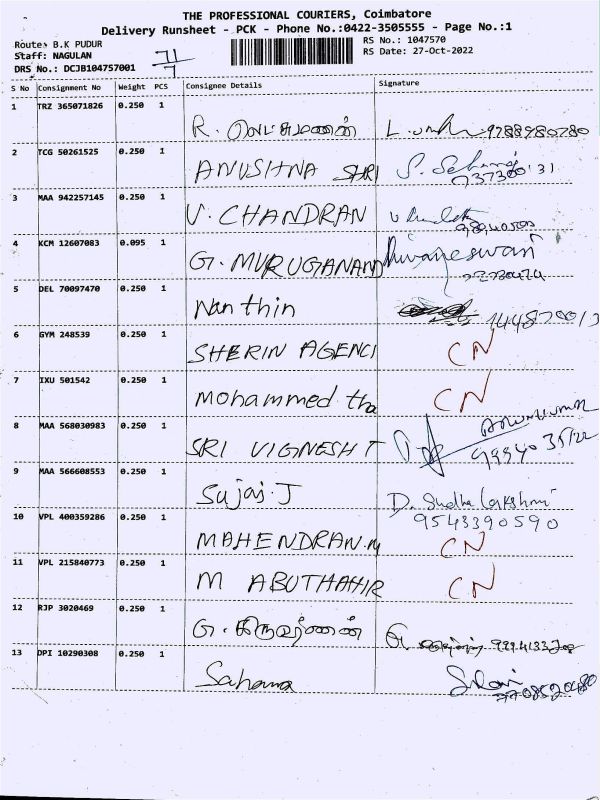 THE PROFESSIONAL COURIERS, Coimbatore
Delivery Runsheet - PCK - Phone No.:0422-3505555 - Page No.:1
Route: B.K PUDUR 71/7 RS No.: 1047570
Staff: NAGULAN RS Date: 27-Oct-2022
DRS No.: DCJB104757001
S No Consignment No Weight PCS Consignee Details Signature
1 TRZ 365071826 0.250 1
R. 9788980780
2 TCG 50261525 0.250 1
ANUSHNA SHRI
3 MAA 942257145 0.250 1
V. CHANDRAN
4 KCM 12607083 0.095 1
G. MURUGANAND
5 DEL 70097470 0.250 1
Nanthin
6 GYM 248539 0.250 1
SHERIN AGENCI CN
7 IXU 501542 0.250 1
Mohammed tha CN
8 MAA 568030983 0.250 1
SRI VIGNESH T
9 MAA 566608553 0.250 1
Sujai. J D. Sudha Lakshmi
9543390590
10 VPL 400359286 0.250 1
MAHENDRAN.M CN
11 VPL 215840773 0.250 1
M ABUTHAHIR CN
12 RJP 3020469 0.250 1
G.
13 DPI 10290308 0.250 1
Sahana